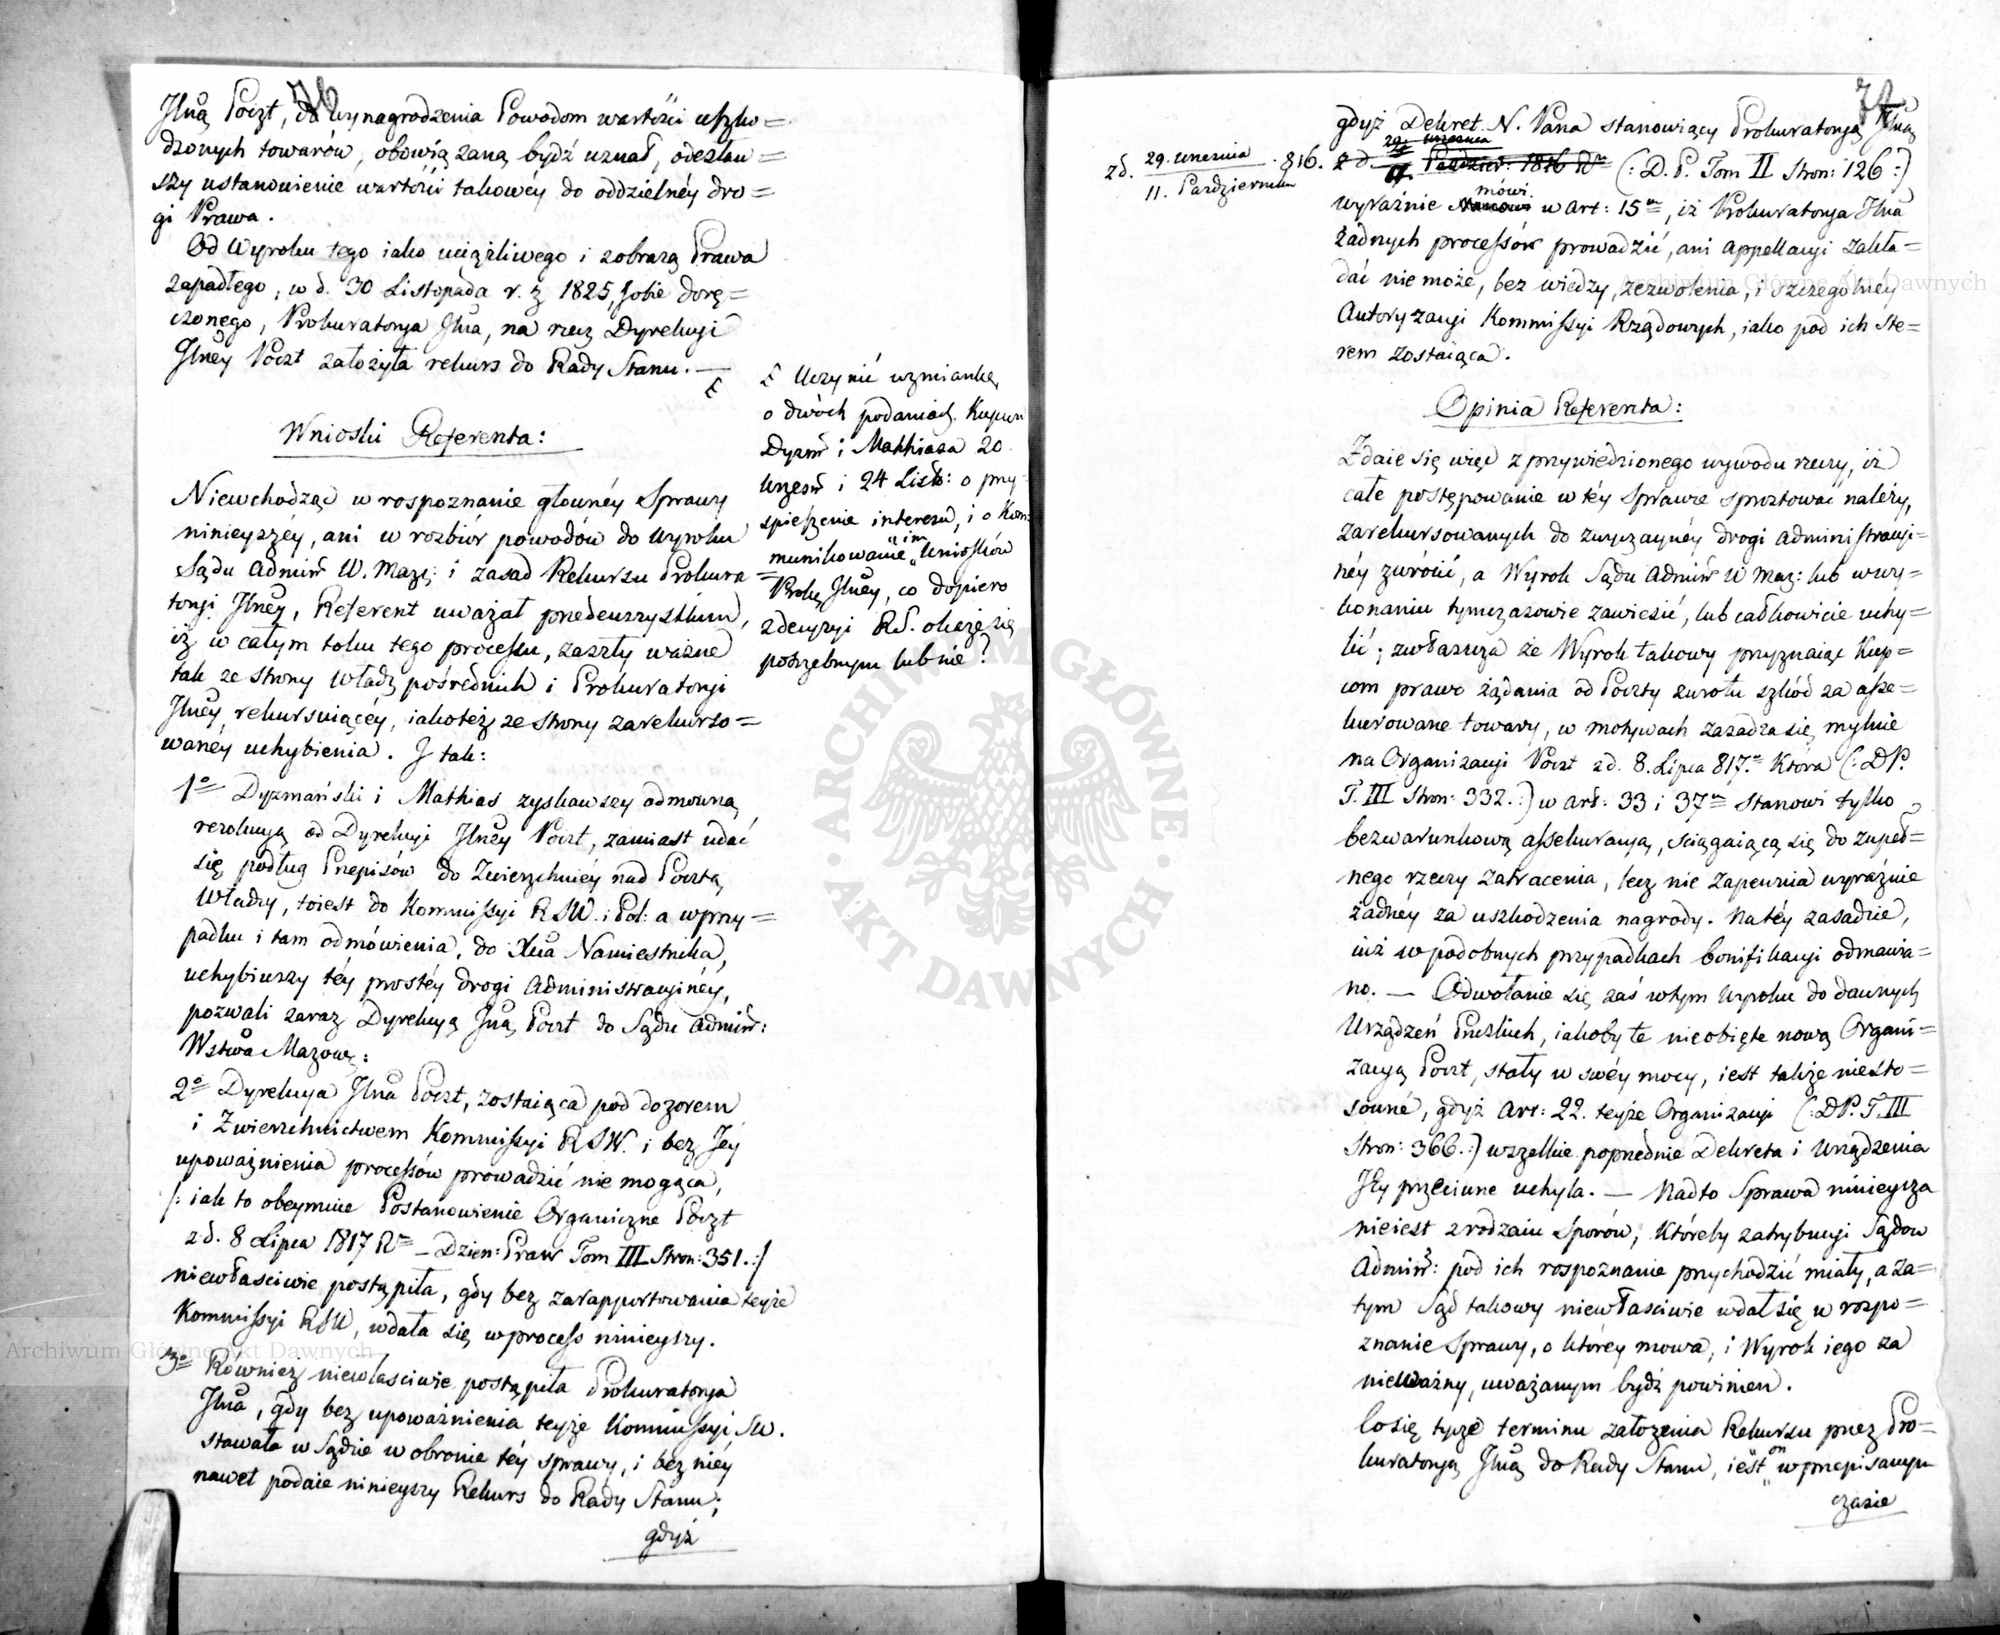 76
Jlną Poczt, do wynagrodzenia Powodom wartości uszko=
dzonych towarów, obowiązaną bydź uznał, odesław=
szy ustanowienie wartości takowéy do oddzielnéy dro=
gi Prawa.
Od Wyroku tego iako uciążliwego i z obrazą Prawa
zapadłego, w d. 30 Listopada r. z. 1825, sobie dorę=
czonego, Prokuratorya Jlna, na rzecz Dyrekcyi
Jlnéy Poczt założyła rekurs do Rady Stanu. —
Wnioski Referenta:
Niewchodząc w rospoznanie głównéy Sprawy
ninieyszéy, ani w rozbiór powodów do Wyroku
Sądu Admiń W. Maz: i zasad Rekursu Prokura=
toryi Jlnéy, Referent uważał przedewszystkiem,
iż w całym toku tego processu, zaszły ważne
tak ze strony Władz pośrednich i Prokuratoryi
Jlnéy rekursuiącéy, iakoteż ze strony zarekurso=
wanéy uchybienia. I tak:
1º Dyzmański i Mathias zyskawszy odmowną
rezolucyą od Dyrekcyi Jlnéy Poczt, zamiast udać
się podług Przepisów do Zwierzchniéy nad Pocztą
Władzy, toiest do Kommissyi RSW. i Pol: a w przy=
padku i tam odmówienia, do Xcia Namiestnika,
uchybiwszy téy prostéy drogi Administracyinéy,
pozwali zaraz Dyrekcyą Jlną Poczt do Sądu Admiń:
Wztwa Mazow:
2º Dyrekcya Jlna Poczt, zostaiąca pod dozorem
i Zwierzchnictwem Kommissyi RSW. i bez Jéy
upoważnienia processów prowadzić nie mogąca,
/: iak to obeymuie Postanowienie Organiczne Poczt
z d. 8 Lipca 1817 R. – Dzien: Praw Tom III Stron: 351. :/
niewłaściwie postąpiła, gdy bez zarapportowania teyże
Kommissyi RSW, wdała się w process ninieyszy.
3º Również niewłaściwie postąpiła Prokuratorya
Jlna, gdy bez upoważnienia teyże Kommissyi SW.
stawała w Sądzie w obronie téy sprawy, i bez niéy
nawet podaie ninieyszy Rekurs do Rady Stanu;
gdyż
Uczynić wzmiankę
o dwóch podaniach Kupców
Dyzm i Mathiasa 20
Wrześ i 24 List: o przy=
spieszenie interesu, i o Kom=
munikowanie im Wniosków
Prok Jlnéy, co dopiero
z decyzyi RS. okaże się
potrzebnym lub nie?
gdyż Dekret N. Pana stanowiący Prokuratoryą Jlną
z d. 29. Września 816.
11. Październik
29 Września
z d. 11. Paździer: 1816 R (: D. P. Tom II Stron: 126 :)
mówi
wyraźnie stanowi w Art: 15m, iż Prokuratorya Jlna
żadnych processów prowadzić, ani appellacyi zakła=
dać nie może, bez wiedzy, zezwolenia, i szczególnéy
Autoryzacyi Kommissyi Rządowych, iako pod ich ste=
rem zostaiąca.
Opinia Referenta:
Zdaie się więc z przywiedzionego wywodu rzeczy, iż
całe postępowanie w téy Sprawie sprostować należy,
zarekursowanych do zwyczaynéy drogi administracyi=
néy zwrócić, a Wyrok Sądu Admiń W Maz: lub w wy=
konaniu tymczasowie zawiesić, lub całkowicie uchy=
lić; zwłaszcza że Wyrok takowy przyznaiąc Kup=
com prawo żądania od Poczty zwrotu szkód za asse=
kurowane towary, w motywach zasadza się mylnie
na Organizacyi Poczt z d. 8. Lipca 817. Która (: DP.
T. III Stron: 332. :) w art: 33 i 37m stanowi tylko
bezwarunkową assekuracyą, ściągaiącą się do zupeł=
nego rzeczy zatracenia, lecz nie zapewnia wyraźnie
żadnéy za uszkodzenia nagrody. Na téy zasadzie,
iuż w podobnych przypadkach bonifikacyi odmawia=
no. — Odwołanie się zaś w tym Wyroku do dawnych
Urządzeń Pruskich, iakoby te nieobięte nową Organi=
zacyą Poczt, stały w swéy mocy, iest także niesto=
sowne, gdyż Art: 22. teyże Organizacyi (: DP. T. III
Stron: 366. :) wszelkie poprzednie Dekreta i Urządzenia
Jéy przeciwne uchyla. — Nadto Sprawa ninieysza
nieiest z rodzaiu Sporów, któreby z atrybucyi Sądów
Admiń: pod ich rospoznanie przychodzić miały, a za=
tym Sąd takowy niewłaściwie wdał się w rospo=
znanie Sprawy, o którey mowa, i Wyrok iego za
nieważny, uważanym bydź powinien.
Co się tycze terminu założenia Rekursu przez Pro=
kuratoryą Jlną do Rady Stanu, iest on w przepisanym
czasie
Archiwum Główne Akt Dawnych
Archiwum Główne Akt Dawnych
ARCHIWUM GŁÓWNE AKT DAWNYCH